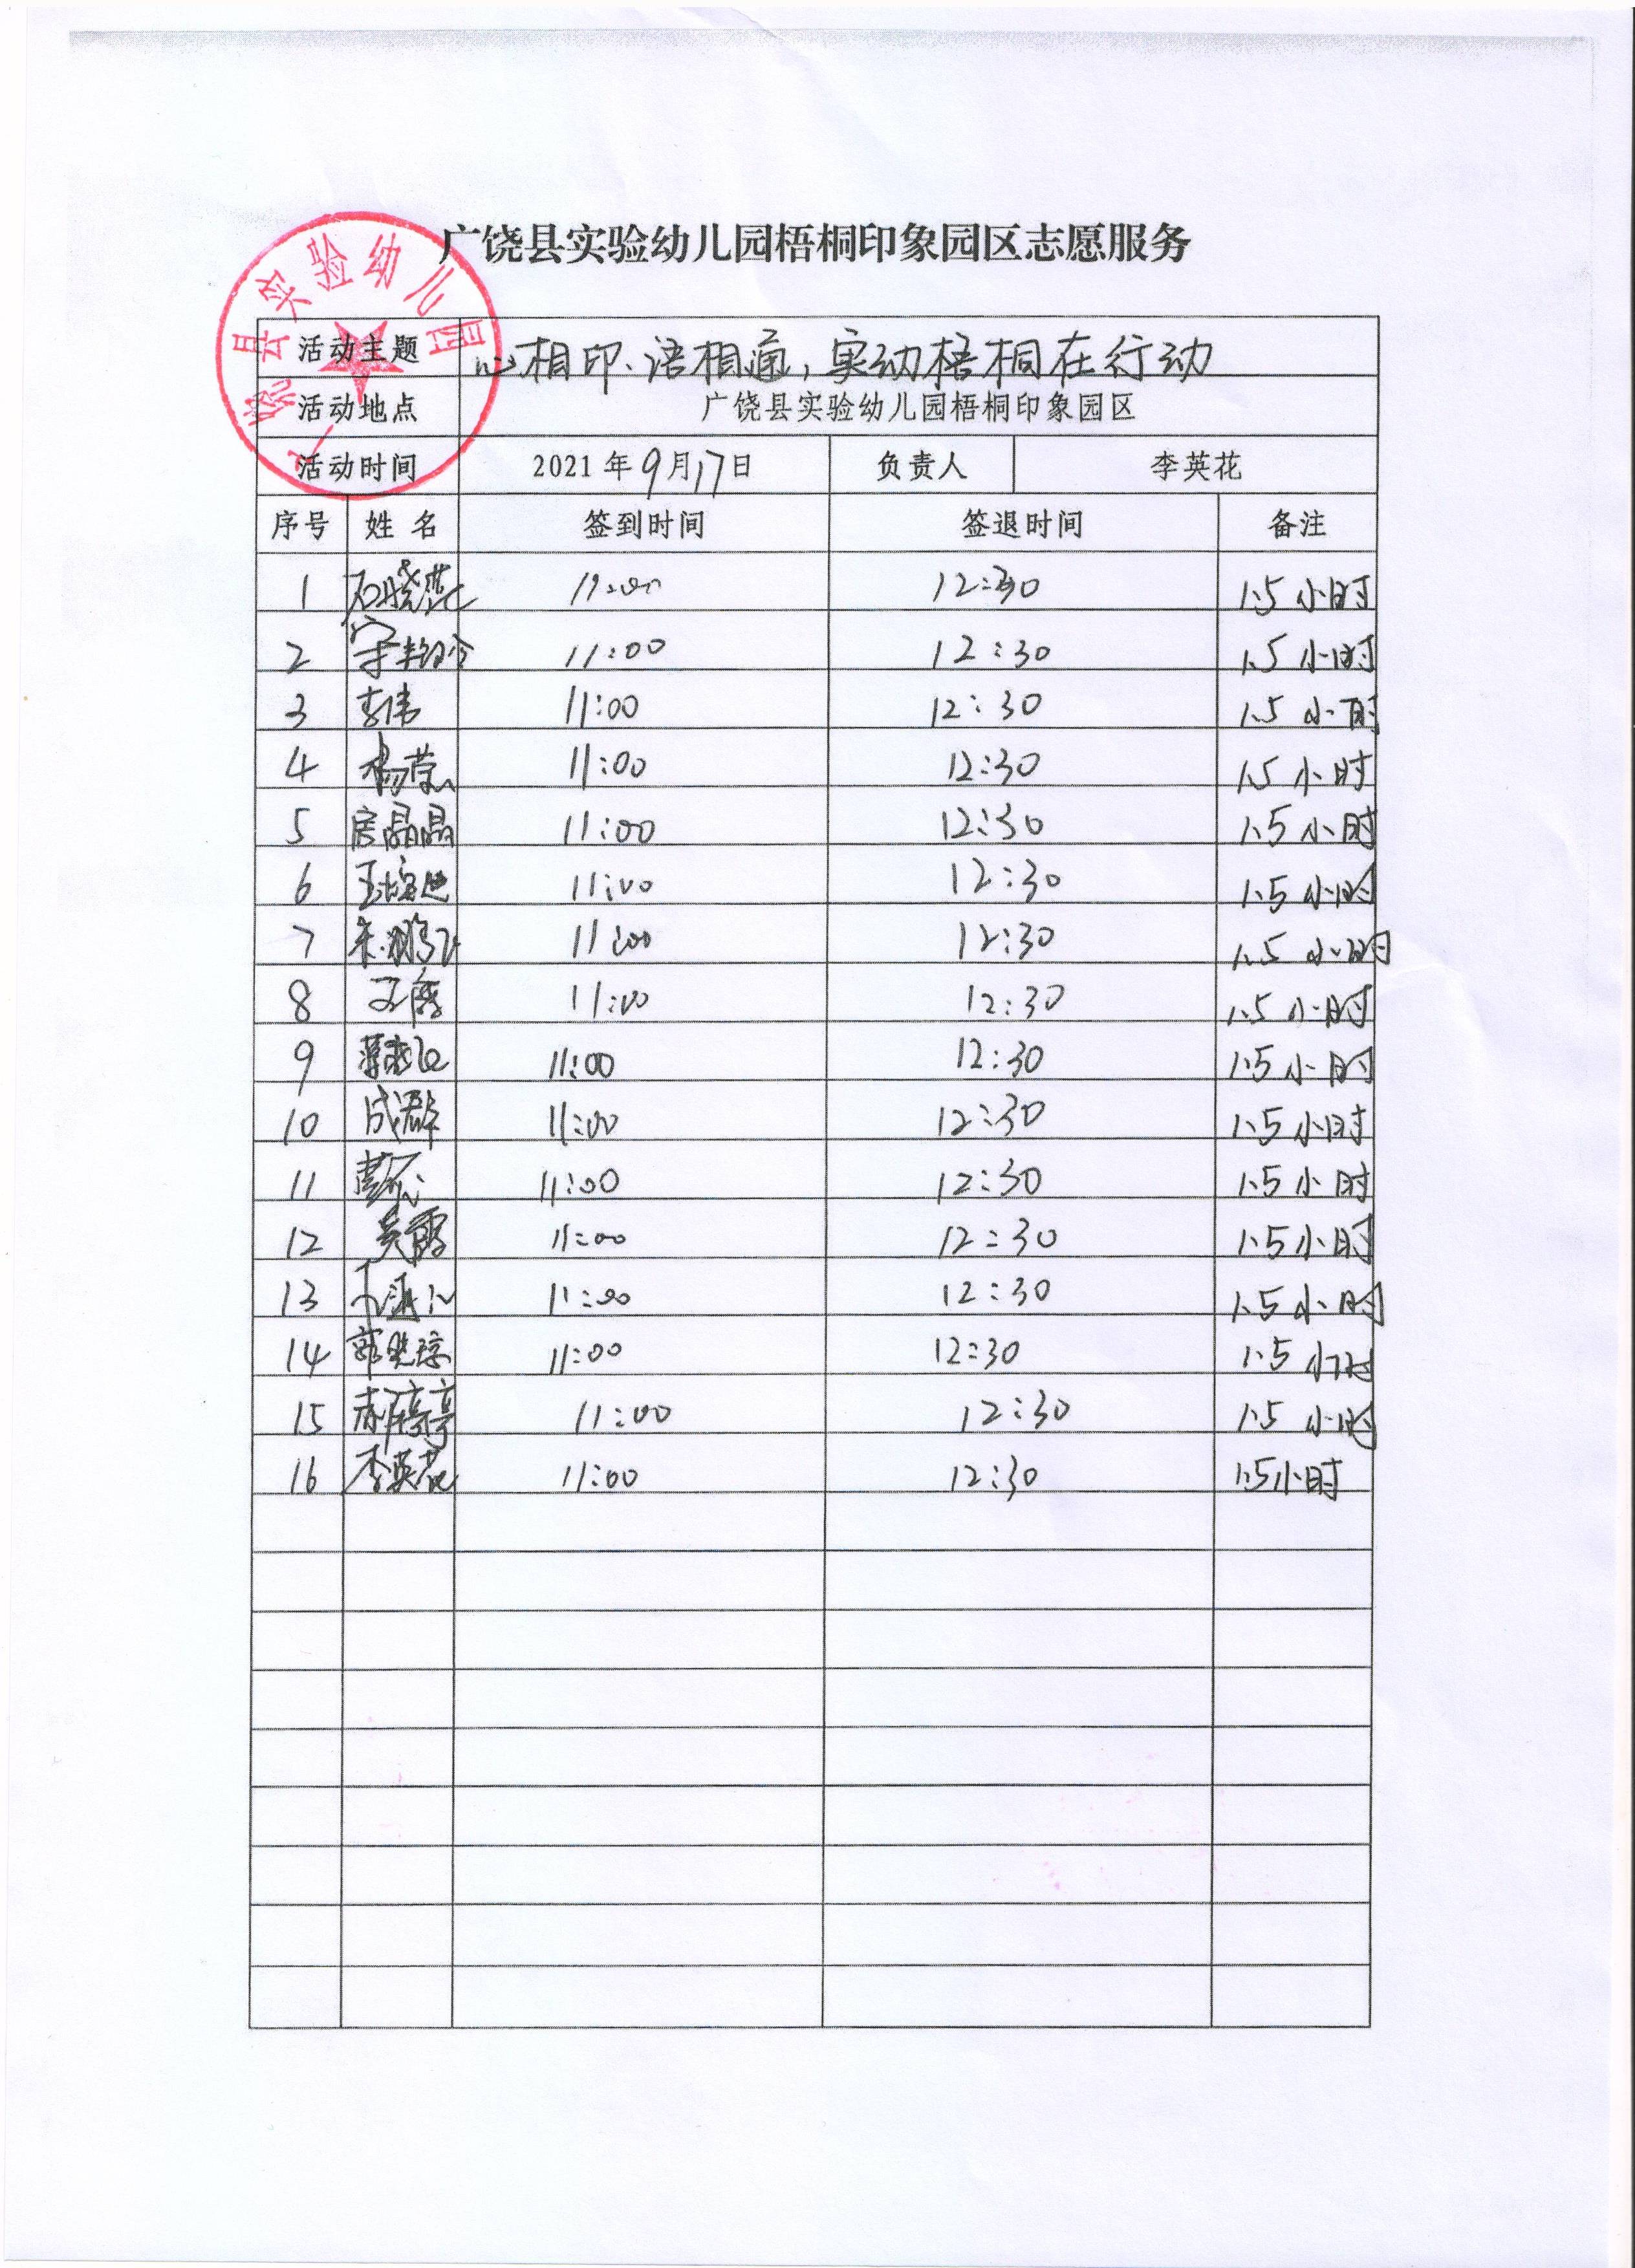 广饶县实验幼儿园梧桐印象园区志愿服务
县实验幼儿园
活动主题 心相印、语相通,实幼梧桐在行动
活动地点 广饶县实验幼儿园梧桐印象园区
活动时间 2021年9月17日 负责人 李英花
序号 姓名 签到时间 签退时间 备注
1 11:00 12:30 1.5小时
2 11:00 12:30 1.5小时
3 李伟 11:00 12:30 1.5小时
4 11:00 12:30 1.5小时
5 房晶晶 11:00 12:30 1.5小时
6 11:00 12:30 1.5小时
7 朱鹏飞 11:00 12:30 1.5小时
8 11:00 12:30 1.5小时
9 11:00 12:30 1.5小时
10 成群 11:00 12:30 1.5小时
11 11:00 12:30 1.5小时
12 吴霞 11:00 12:30 1.5小时
13 11:00 12:30 1.5小时
14 11:00 12:30 1.5小时
15 11:00 12:30 1.5小时
16 李英花 11:00 12:30 1.5小时